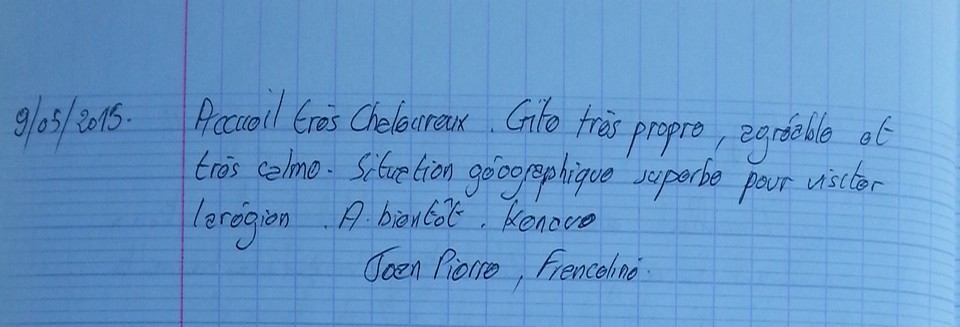 9/05/2015. Accueil très Chaloureux. Gîte très propre, agréable et
très calme. Situation géographique superbe pour visiter
la région. A bientôt. Kenavo
Jean Pierre, Franceline.